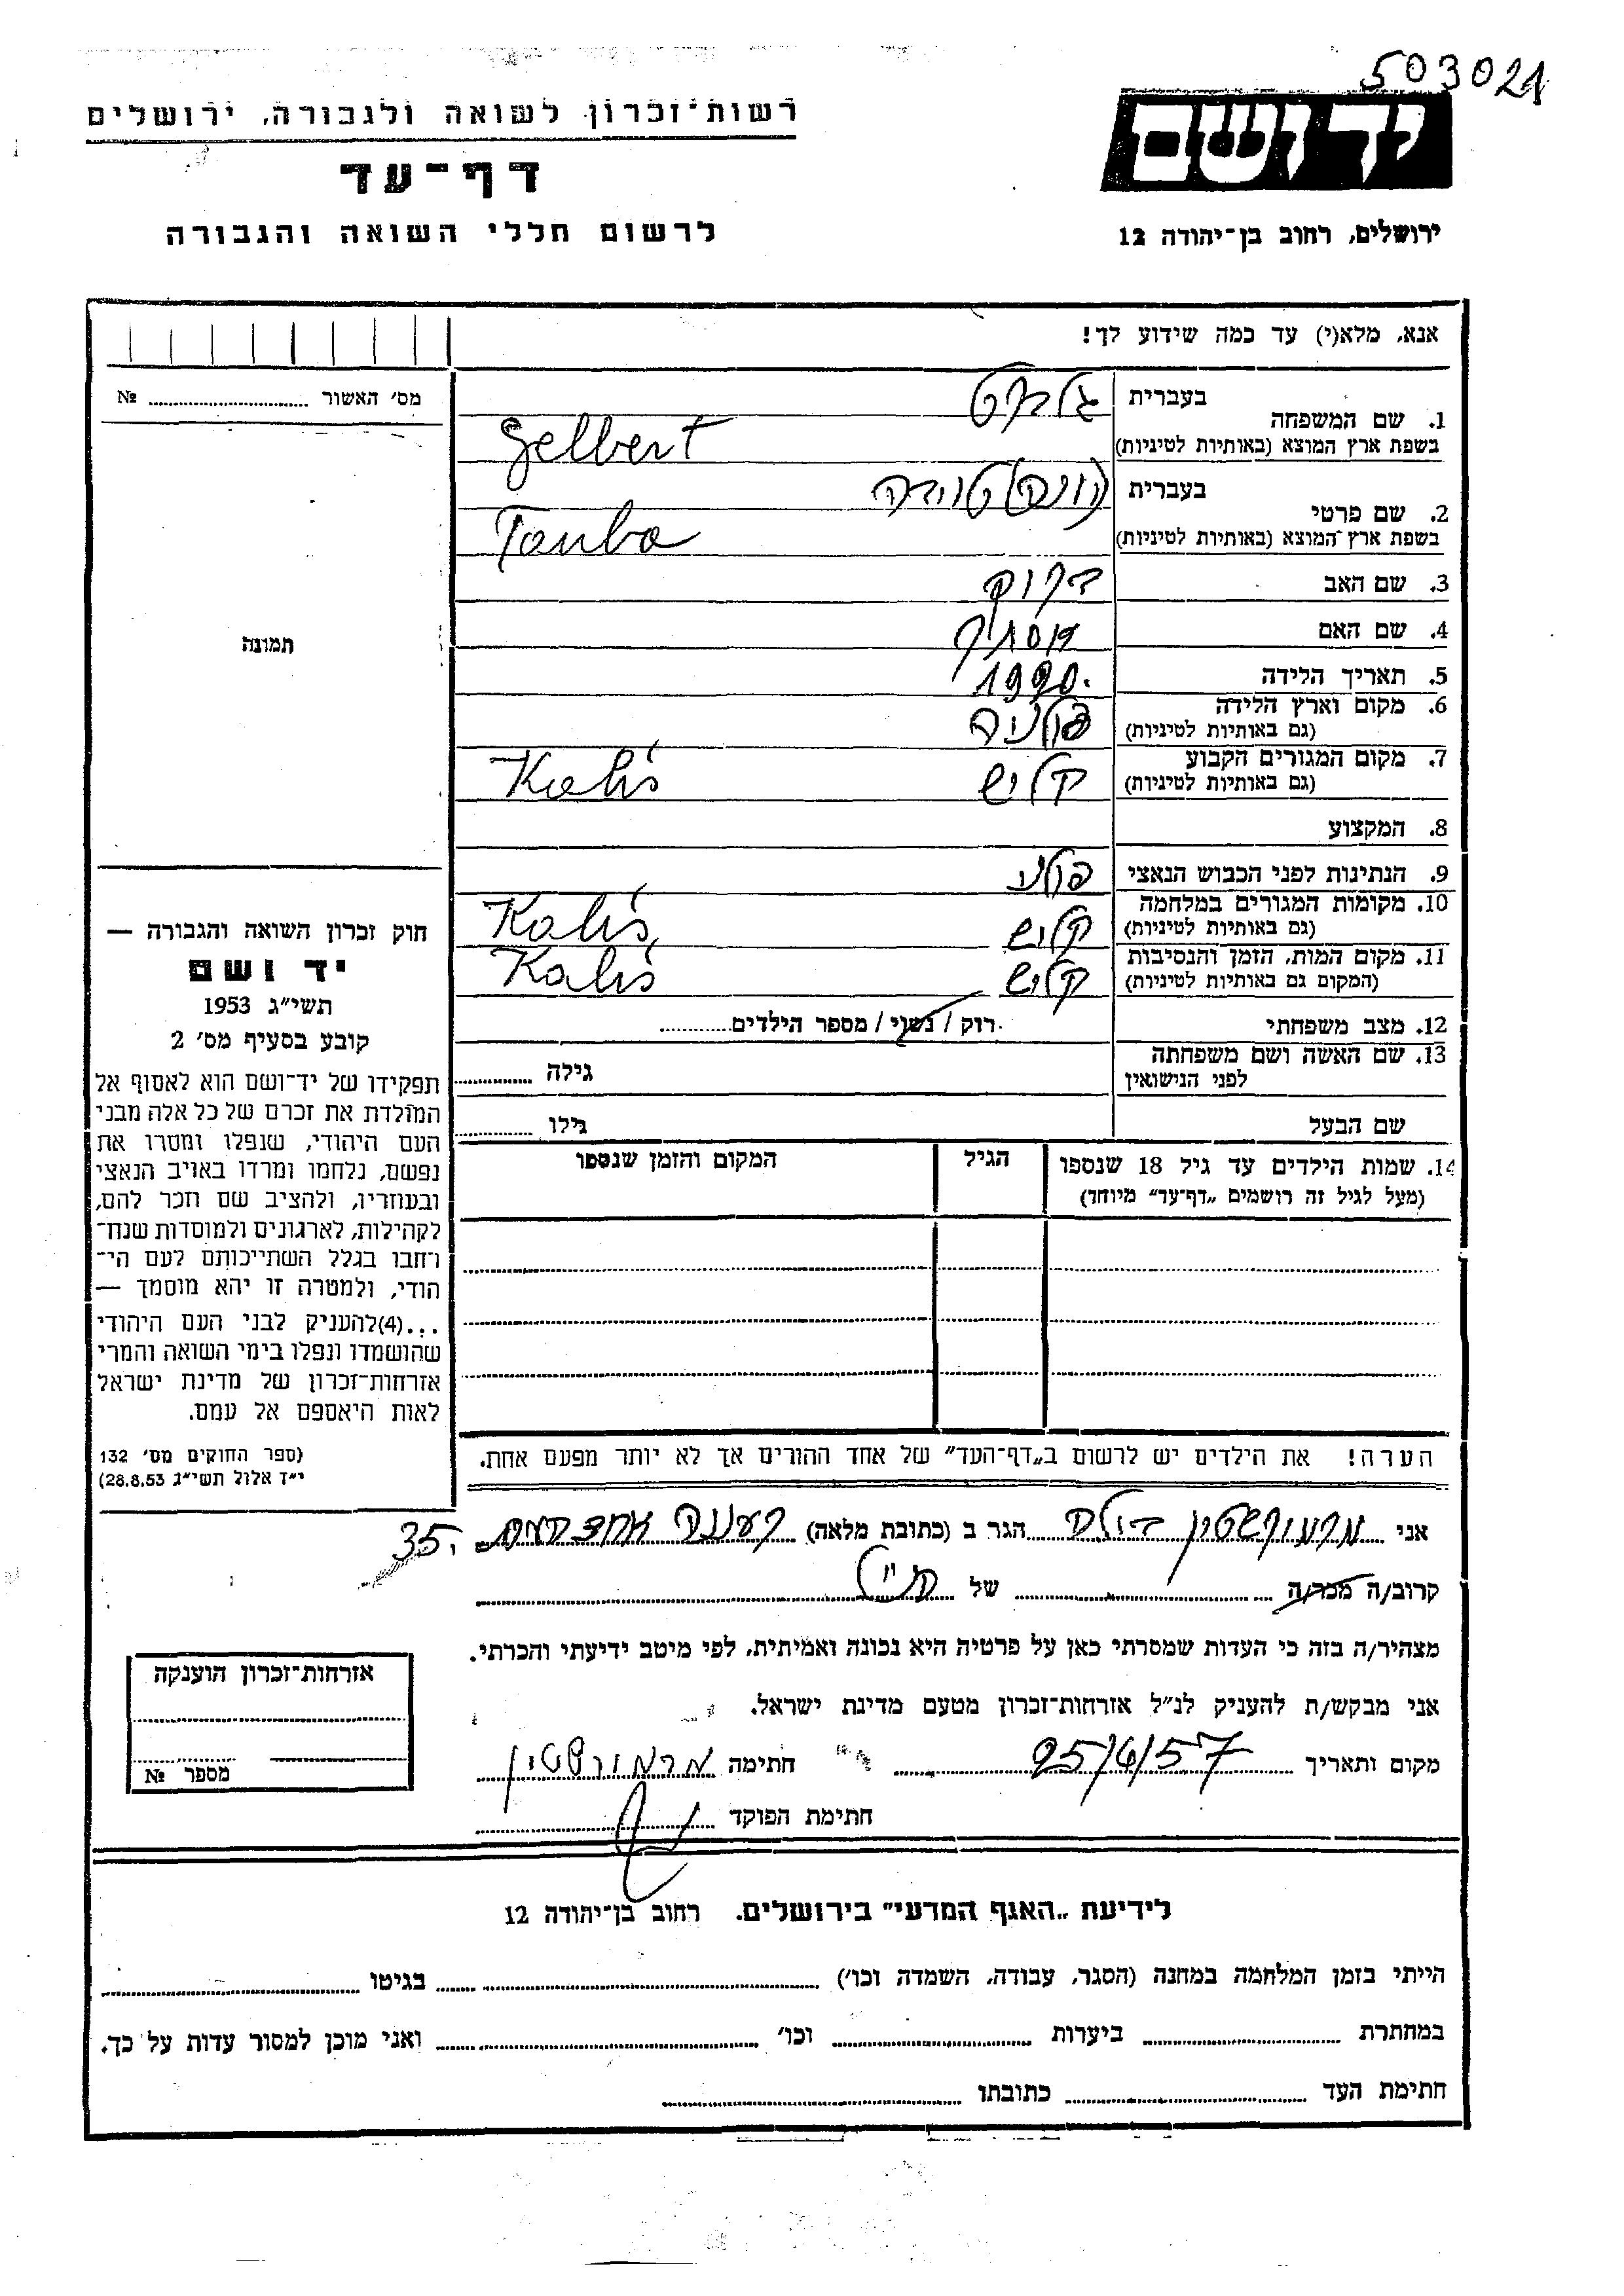 503021
יד ושם
ירושלים, רחוב בן־יהודה 12
רשות־זכרון לשואה ולגבורה, ירושלים
דף־עד
לרשום חללי השואה והגבורה
אנא, מלא(י) עד כמה שידוע לך!
מס׳ האשור № 
1. שם המשפחה
בעברית גלברט
בשפת ארץ המוצא (באותיות לטיניות) Gelbert
2. שם פרטי
בעברית טובה
בשפת ארץ המוצא (באותיות לטיניות) Tauba
3. שם האב ברוך
4. שם האם אסתר
5. תאריך הלידה 1920.
6. מקום וארץ הלידה פולניה
(גם באותיות לטיניות)
7. מקום המגורים הקבוע קליש Kaliś
(גם באותיות לטיניות)
8. המקצוע
9. הנתינות לפני הכבוש הנאצי פולני
10. מקומות המגורים במלחמה קליש Kaliś,
(גם באותיות לטיניות)
11. מקום המות, הזמן והנסיבות קליש Kaliś
(המקום גם באותיות לטיניות)
12. מצב משפחתי רוק / נשוי / מספר הילדים
13. שם האשה ושם משפחתה גילה
לפני הנישואין
שם הבעל גילו
14. שמות הילדים עד גיל 18 שנספו הגיל המקום והזמן שנספו
(מעל לגיל זה רושמים „דף־עד״ מיוחד)
הערה! את הילדים יש לרשום ב„דף־העד״ של אחד ההורים אך לא יותר מפעם אחת.
תמונה
חוק זכרון השואה והגבורה —
יד ושם
תשי״ג 1953
קובע בסעיף מס׳ 2
תפקידו של יד־ושם הוא לאסוף אל
המולדת את זכרם של כל אלה מבני
העם היהודי, שנפלו ומסרו את
נפשם, נלחמו ומרדו באויב הנאצי
ובעוזריו, ולהציב שם וזכר להם,
לקהילות, לארגונים ולמוסדות שנח־
רחבו בגלל השתייכותם לעם הי־
הודי, ולמטרה זו יהא מוסמך —
...(4)להעניק לבני העם היהודי
שהושמדו ונפלו בימי השואה והמרי
אזרחות־זכרון של מדינת ישראל
לאות היאספם אל עמם.
(ספר החוקים מס׳ 132
י״ד אלול תשי״ג 28.8.53)
אני הגר ב (כתובת מלאה) רעננה 35.
קרוב/ה מכר/ה של
מצהיר/ה בזה כי העדות שמסרתי כאן על פרטיה היא נכונה ואמיתית, לפי מיטב ידיעתי והכרתי.
אני מבקש/ת להעניק לנ״ל אזרחות־זכרון מטעם מדינת ישראל.
מקום ותאריך 25/6/57 חתימה
חתימת הפוקד
אזרחות־זכרון הוענקה
מספר №
לידיעת „האגף המדעי״ בירושלים. רחוב בן־יהודה 12
הייתי בזמן המלחמה במחנה (הסגר, עבודה, השמדה וכו׳) בגיטו
במחתרת ביערות וכו׳ ואני מוכן למסור עדות על כך.
חתימת העד כתובתו